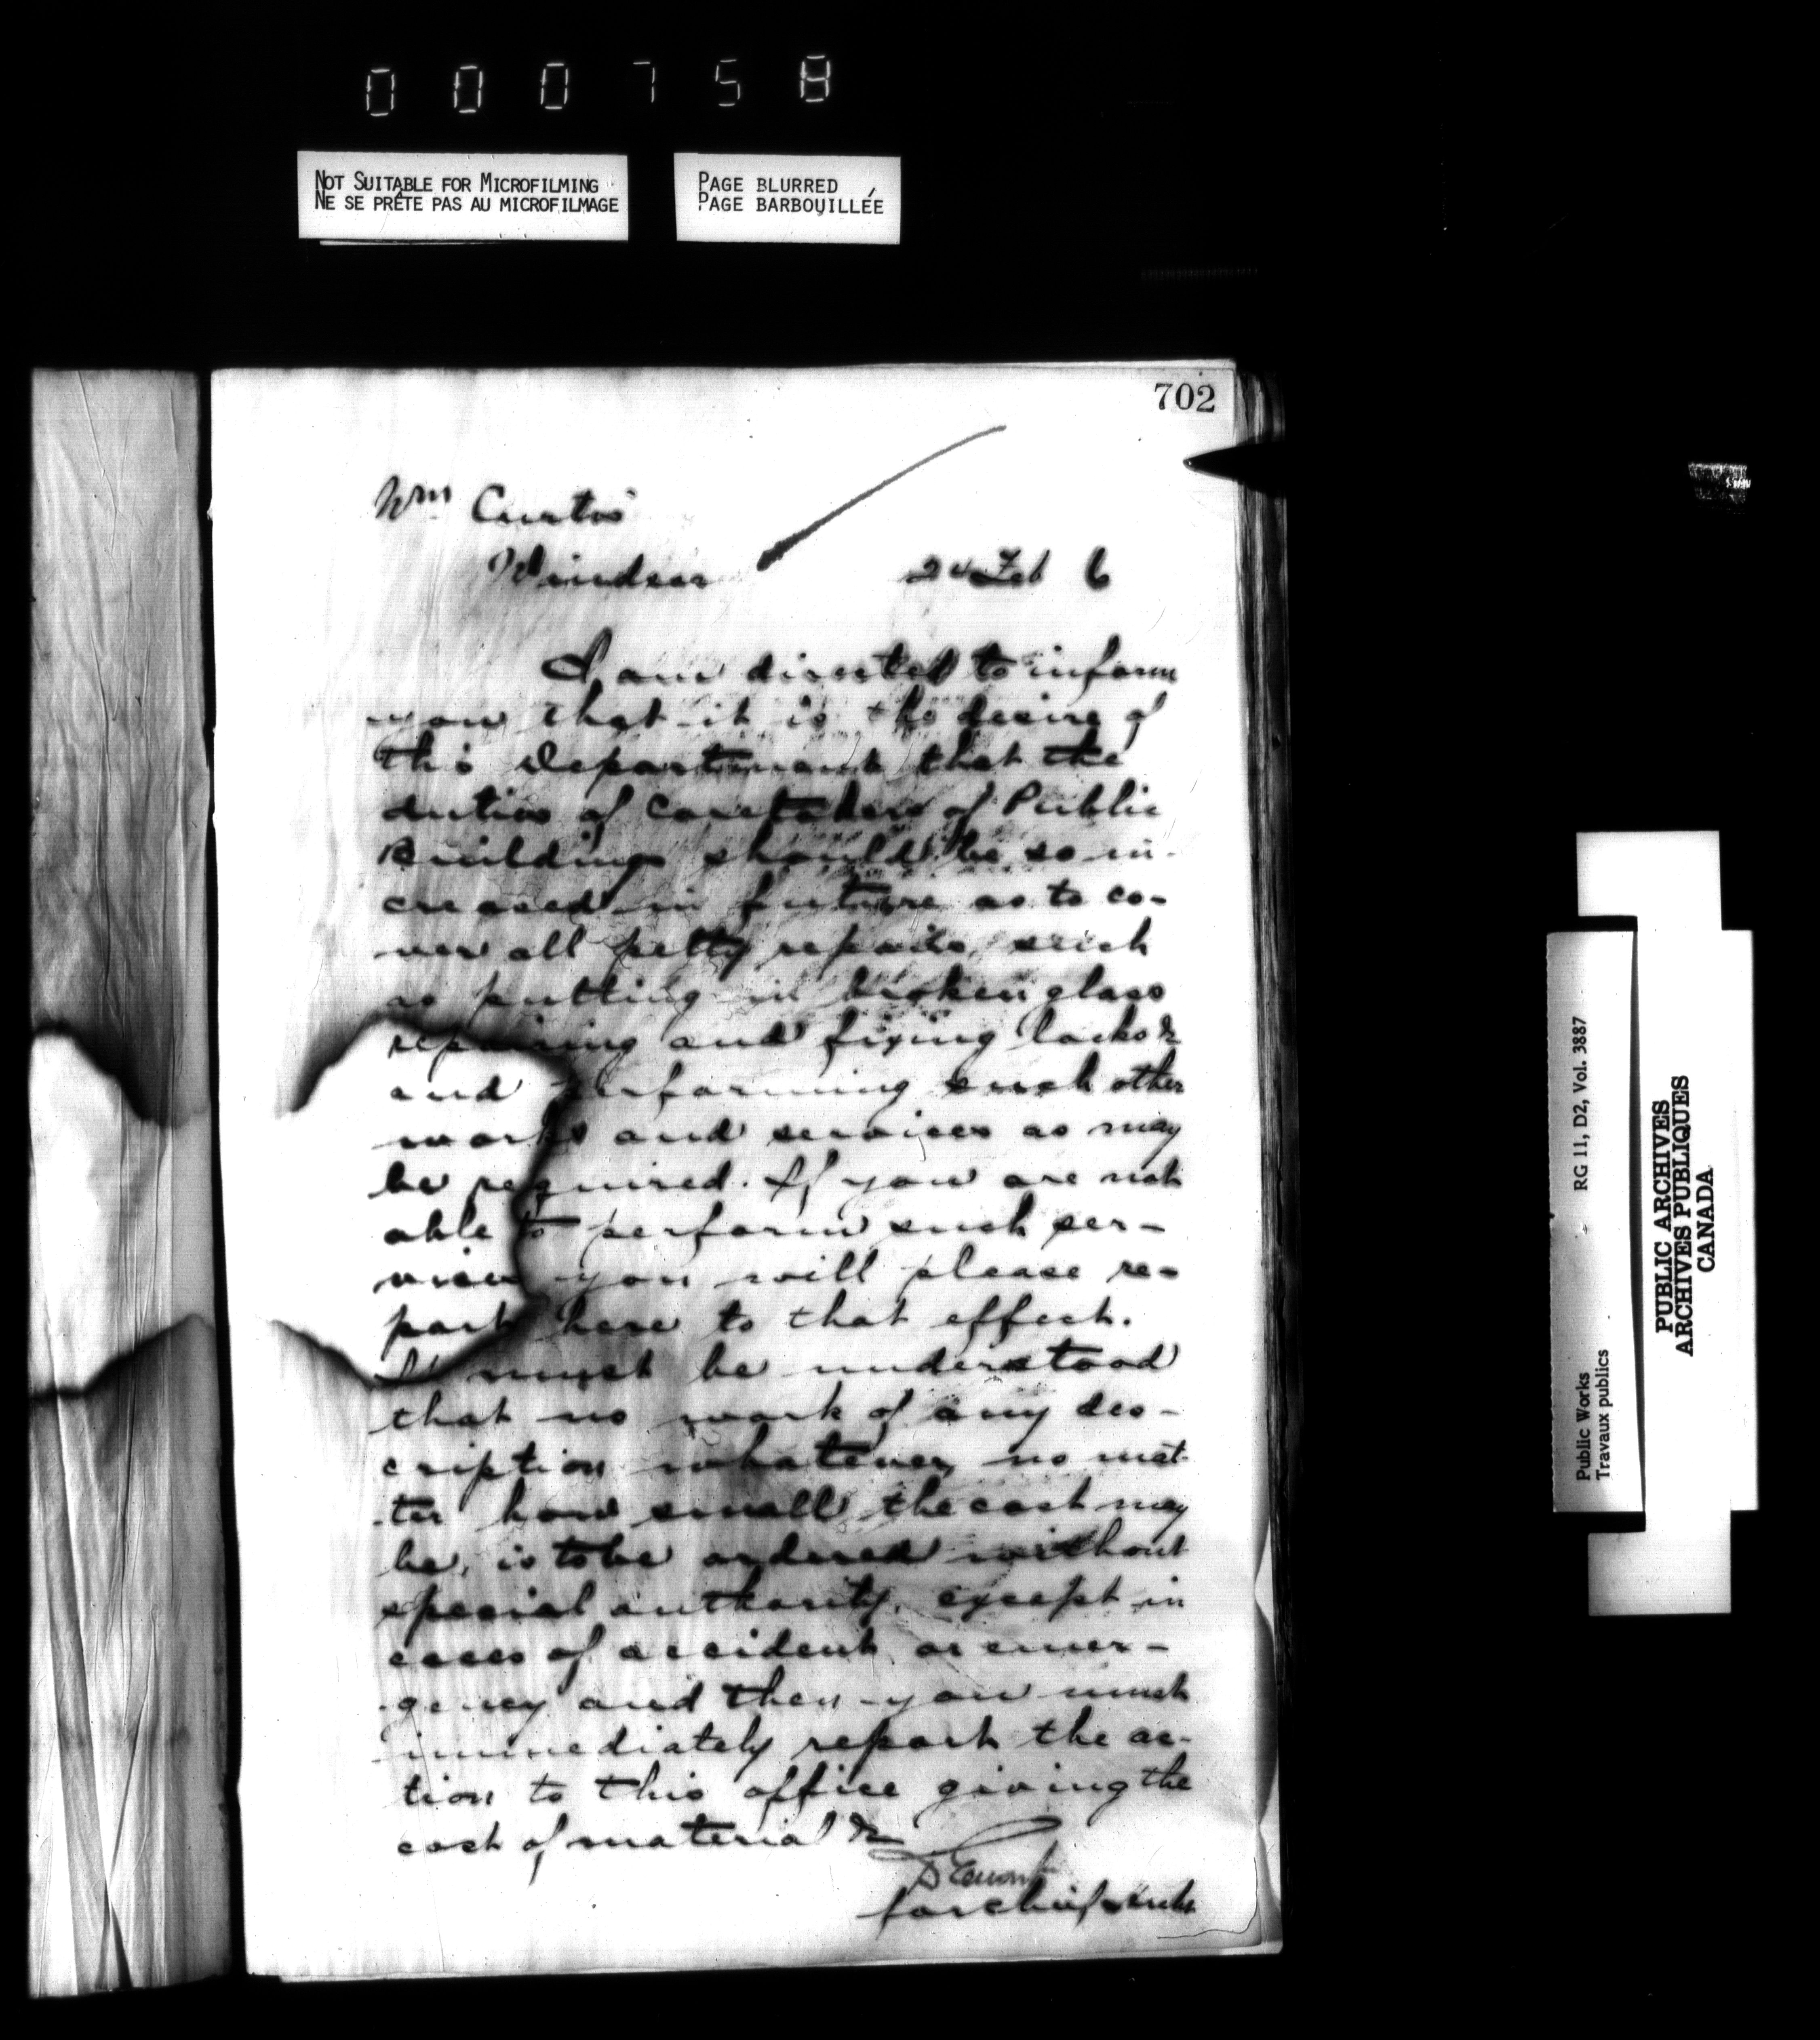 000758
NOT SUITABLE FOR MICROFILMING
NE SE PRÊTE PAS AU MICROFILMAGE
PAGE BLURRED
PAGE BARBOUILLÉE
702
Wm Curtis
Windsor 24 Feb 6
I am directed to inform
you that it is the desire of
this Department that the
duties of Caretakers of Public
Buildings should be so in-
creased in future as to co-
ver all petty repairs, such
as putting in broken glass
repairing and fixing locks &c
and performing such other
works and services as may
be required. If you are not
able to perform such ser-
vices you will please re-
port here to that effect.
It must be understood
that no work of any des-
cription whatever, no mat-
ter how small the cost may
be, is to be ordered without
special authority, except in
cases of accident or emer-
gency and then you must
immediately report the ac-
tion to this office giving the
cost of material &c
D Ewart
for chief archt
Public Works
Travaux publics
RG 11, D2, Vol. 3887
PUBLIC ARCHIVES
ARCHIVES PUBLIQUES
CANADA